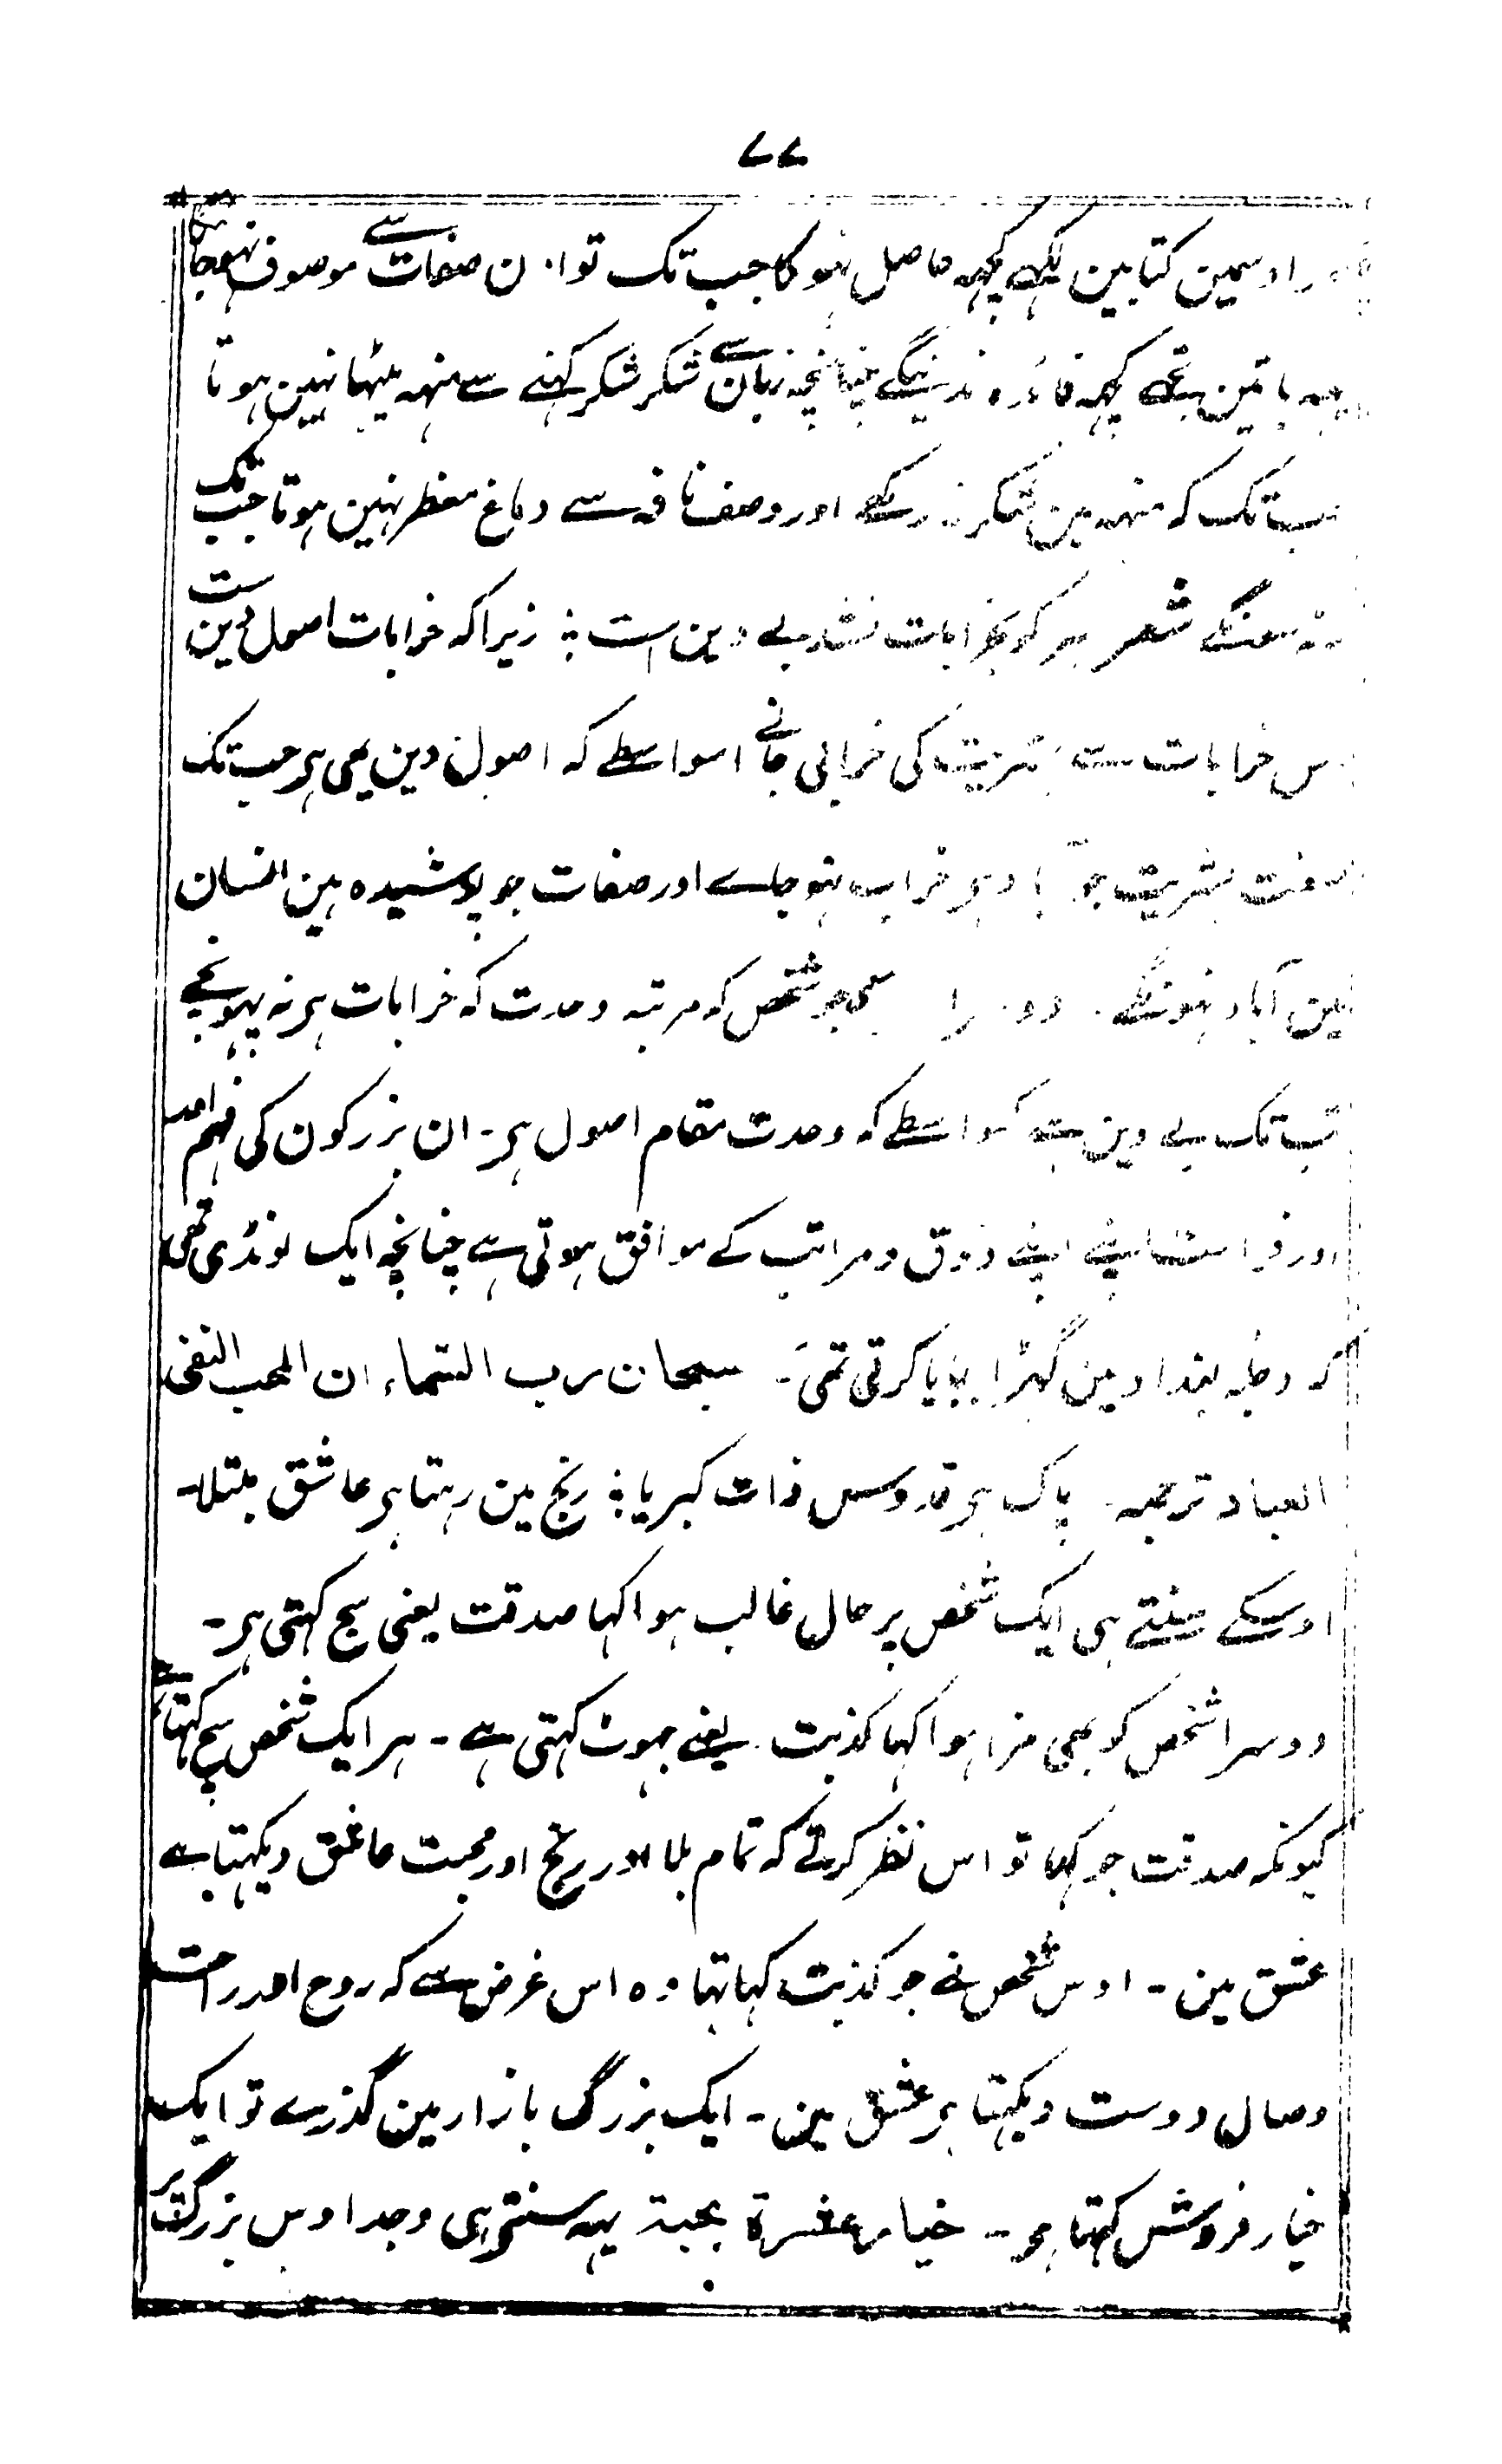 ۷۷
اور اوسمین کتابین لکھے کچھہ حاصل نہوگا جب تک تو ان صفات سے موصوف نہوجا
یہہ باتین تجھے کچھہ فائدہ ندینگے چنانچہ زبان سے شکر شکر کہنے سے منہہ میٹھا نہین ہوتا
جب تک کہ منہہ مین شکر نہ رکھے اور وصف نافہ سے دماغ معطر نہین ہوتا جب تک
نہ سونگے شعر ہر کو بخرابات نشد بے دین است ؛ زیراکہ خرابات اصول دین ست
اس خرابات سے بشریت کی خرابی جانے اسواسطے کہ اصول دین یہی ہر جب تک
صفت بشریت جو آباد ہر خراب نہوجاے اور صفات جو پوشیدہ ہین انسان
مین آباد نہونگے۔ دوسرا معنی جو شخص کہ مرتبہ وحدت کہ خرابات ہر نہ پہونچے
تب تک بے دین ہے کسواسطے کہ وحدت مقام اصول ہر۔ ان بزرگون کی فہم اور
اور فراست اپنے اپنے ذوق و مراتب کے موافق ہوتی ہے چنانچہ ایک لونڈی تھی
کہ دجلہ بغداد مین گہڑا بنایا کرتی تھی۔ سبحان رب السماء ان المحب النفی
العباد ترجمہ۔ پاک ہر قدوس ذات کبریا ؛ رنج مین رہتا ہر عاشق مبتلا۔
اوسکے سنتے ہی ایک شخص پر حال غالب ہوا کہا صدقت یعنی سچ کہتی ہر۔
دوسرا شخص کو بھی مزا ہوا کہا کذبت۔ یعنے جہوٹ کہتی ہے۔ ہر ایک شخص سچ کہتا ہے
کیونکہ صدقت جو کہا تو اس نظر کرتے کہ تمام بلا اور رنج اور محبت عاشق دیکہتا ہے
عشق مین۔ اوس شخص نے جو کذبت کہا تہا وہ اس غرض سے کہ روح اور راحت
وصال دوست دیکہتا ہر عشق مین۔ ایک بزرگ بازار مین گذرے تو ایک
خیار فروش کہتا ہر۔ خیار عشرة بحبة یہہ سنتے ہی وجد اوس بزرگ پر